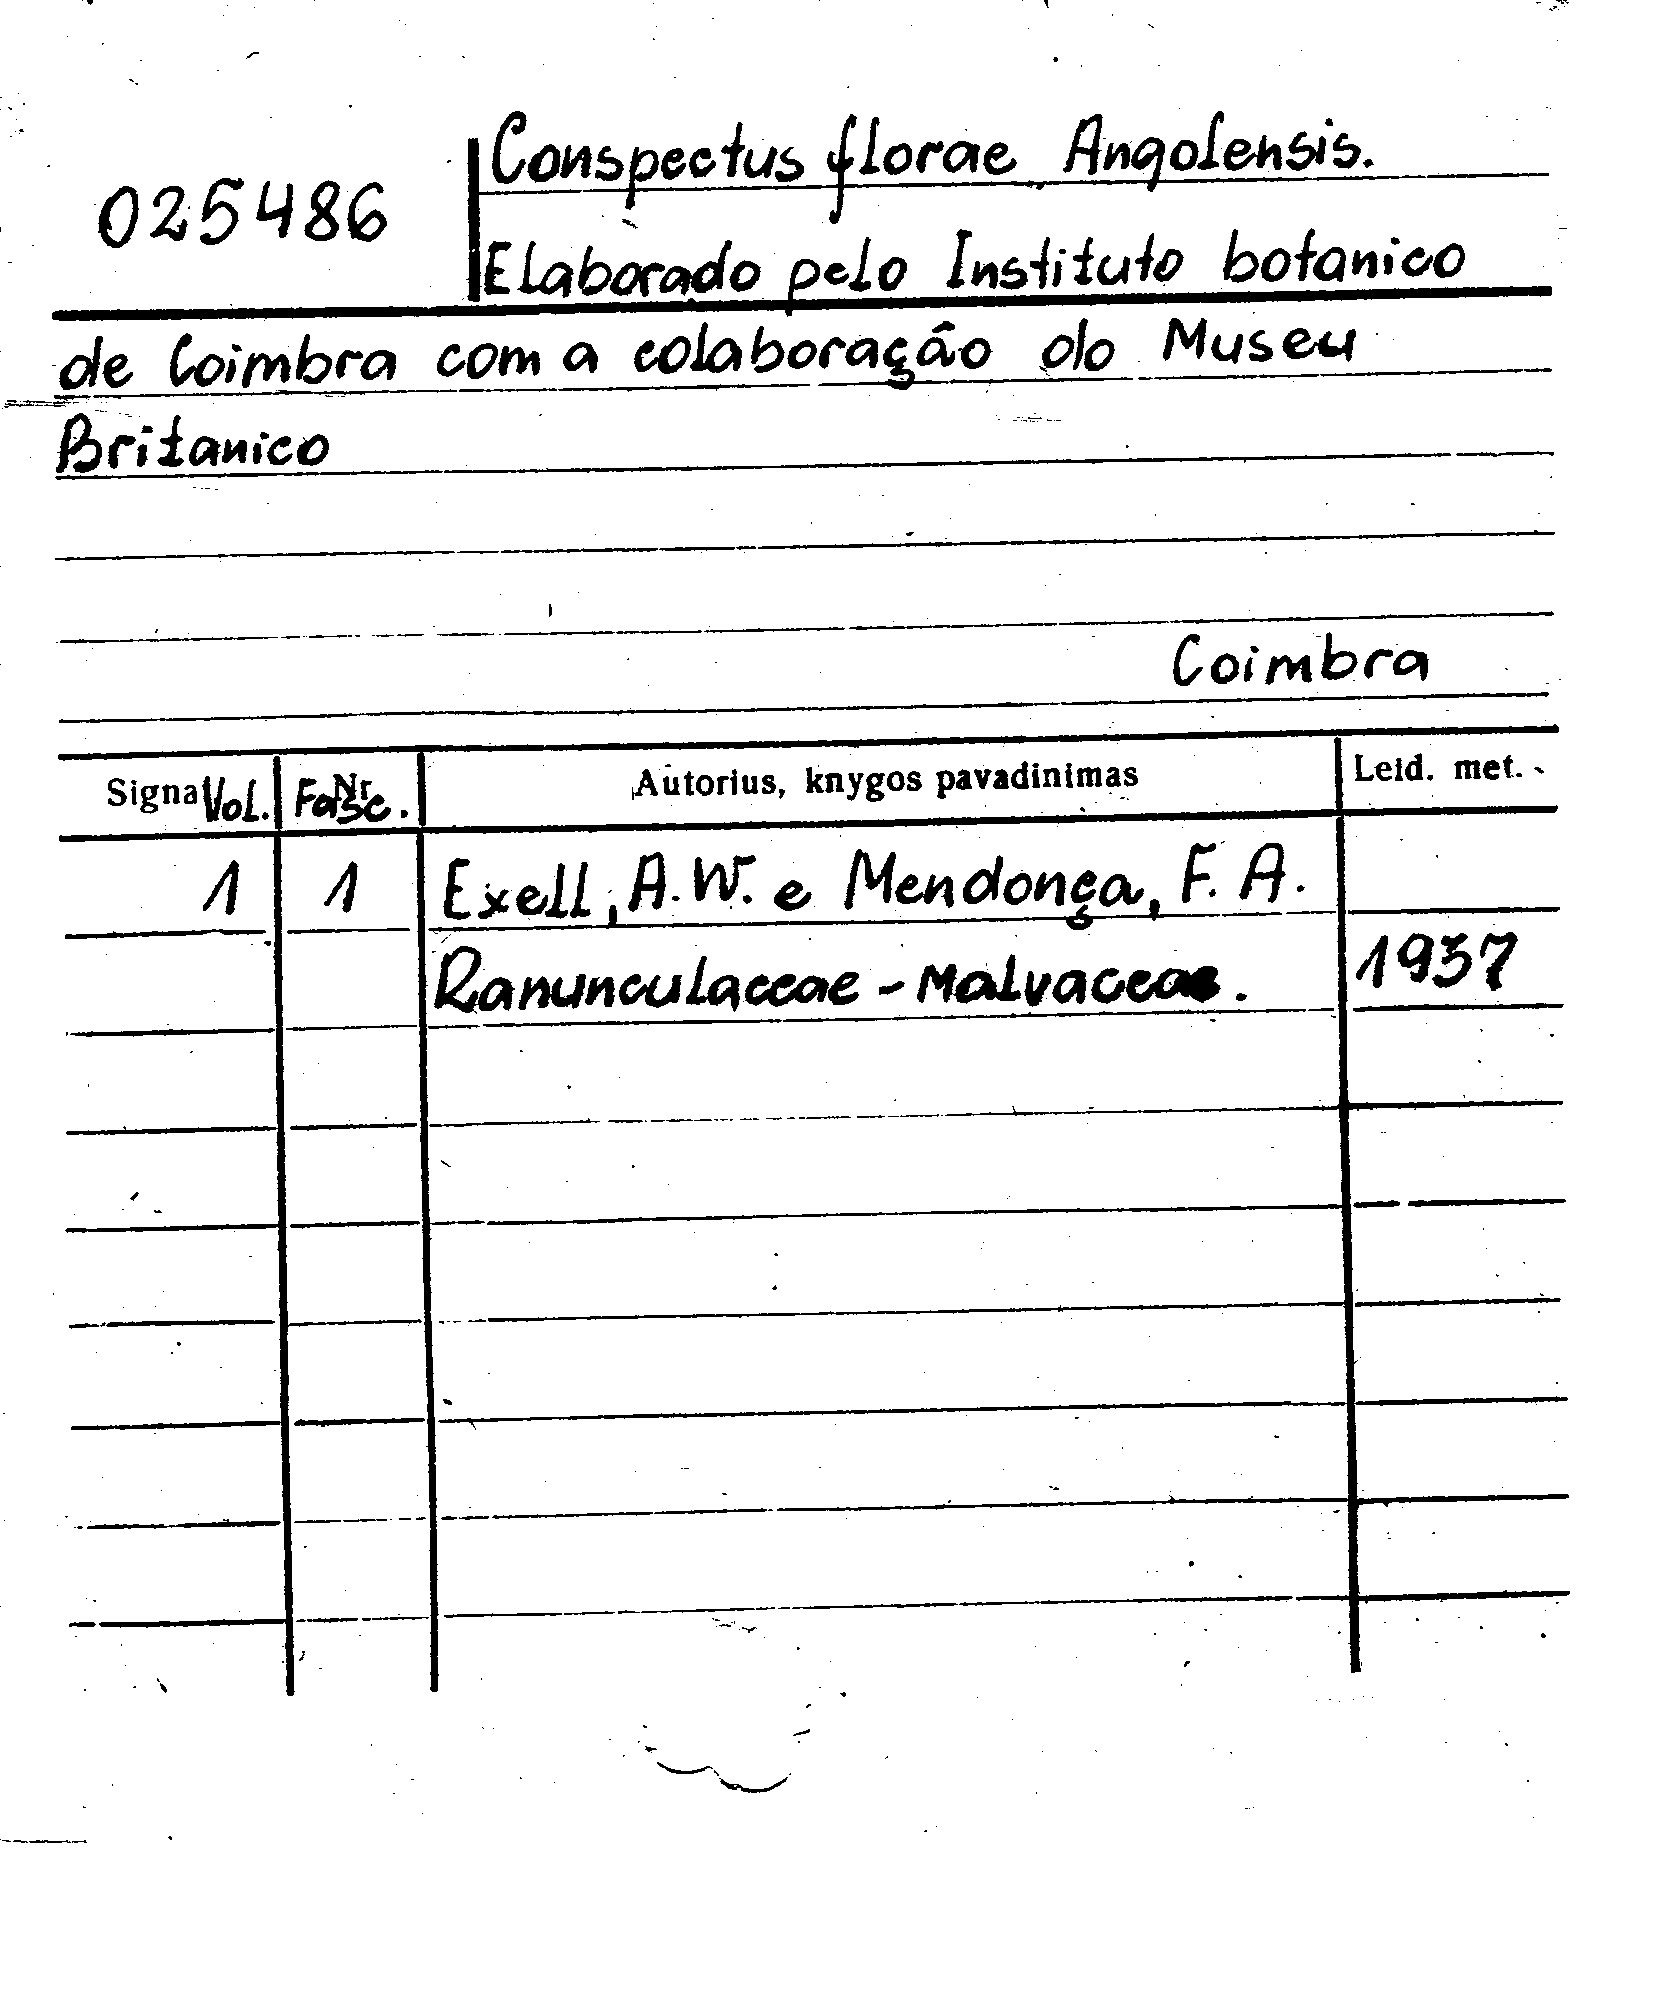 025486
Conspectus florae Angolensis.
Elaborado pelo Instituto botanico
de Coimbra com a colaboração do Museu
Britanico
Coimbra
Signa Vol. Nr. Fasc. Autorius, knygos pavadinimas Leid. met.
1 1 Exell, A.W. e Mendonça, F. A.
Ranunculaceae - Malvaceae. 1937